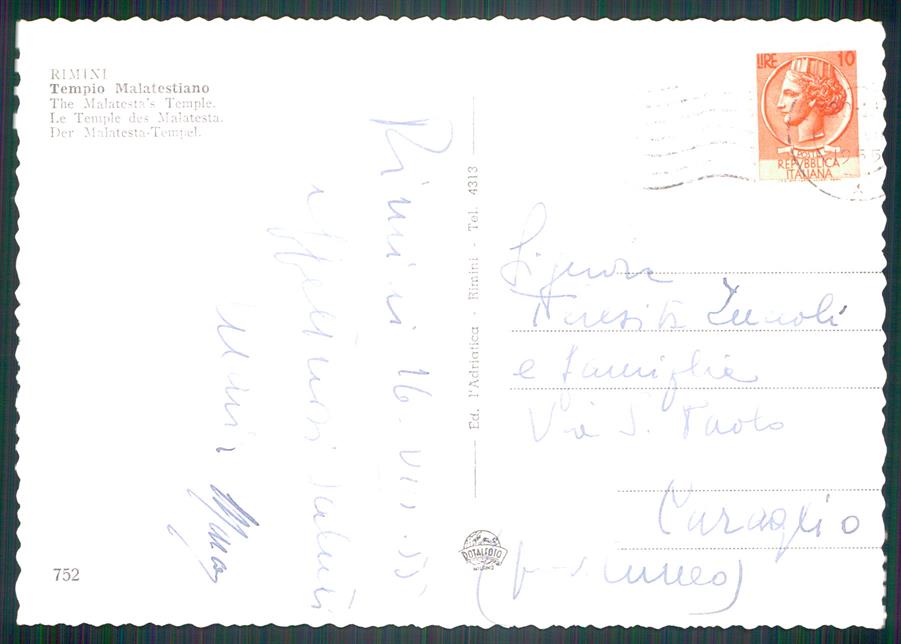 RIMINI
Tempio Malatestiano
The Malatesta's Temple.
Le Temple des Malatesta.
Der Malatesta-Tempel.
LIRE 10
POSTE
REPVBBLICA
ITALIANA
1955
Rimini 16. VIII. 55
affettuosi saluti
Ed. l'Adriatica - Rimini - Tel. 4313
Signora
Teresita
e famiglia
Via S. Paolo
Caraglio
(Cuneo)
ROTALFOTO
MILANO
752